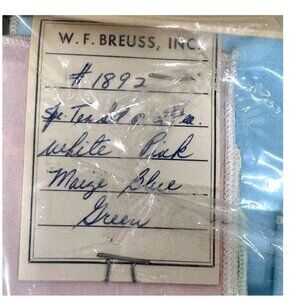 W. F. BREUSS, INC.
# 1892
White Pink
Maize Blue
Green